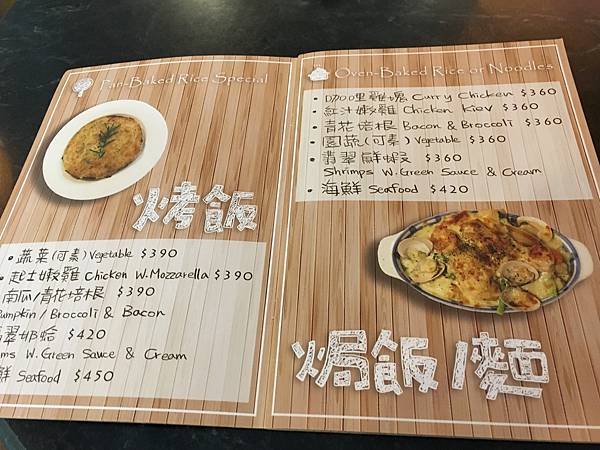 Pan-Baked Rice Special
烤飯
• 蔬菜(可素) Vegetable $390
• 起士嫩雞 Chicken W. Mozzarella $390
南瓜/青花培根 $390
umpkin / Broccoli & Bacon
翠奶蛤 $420
ms W. Green Sauce & Cream
鮮 Seafood $450
Oven-Baked Rice or Noodles
• 咖哩雞塊 Curry Chicken $360
• 紅汁嫩雞 Chicken Kiev $360
• 青花培根 Bacon & Broccoli $360
• 園蔬(可素) Vegetable $360
• 翡翠鮮蝦 $360
Shrimps W. Green Sauce & Cream
• 海鮮 Seafood $420
焗飯/麵